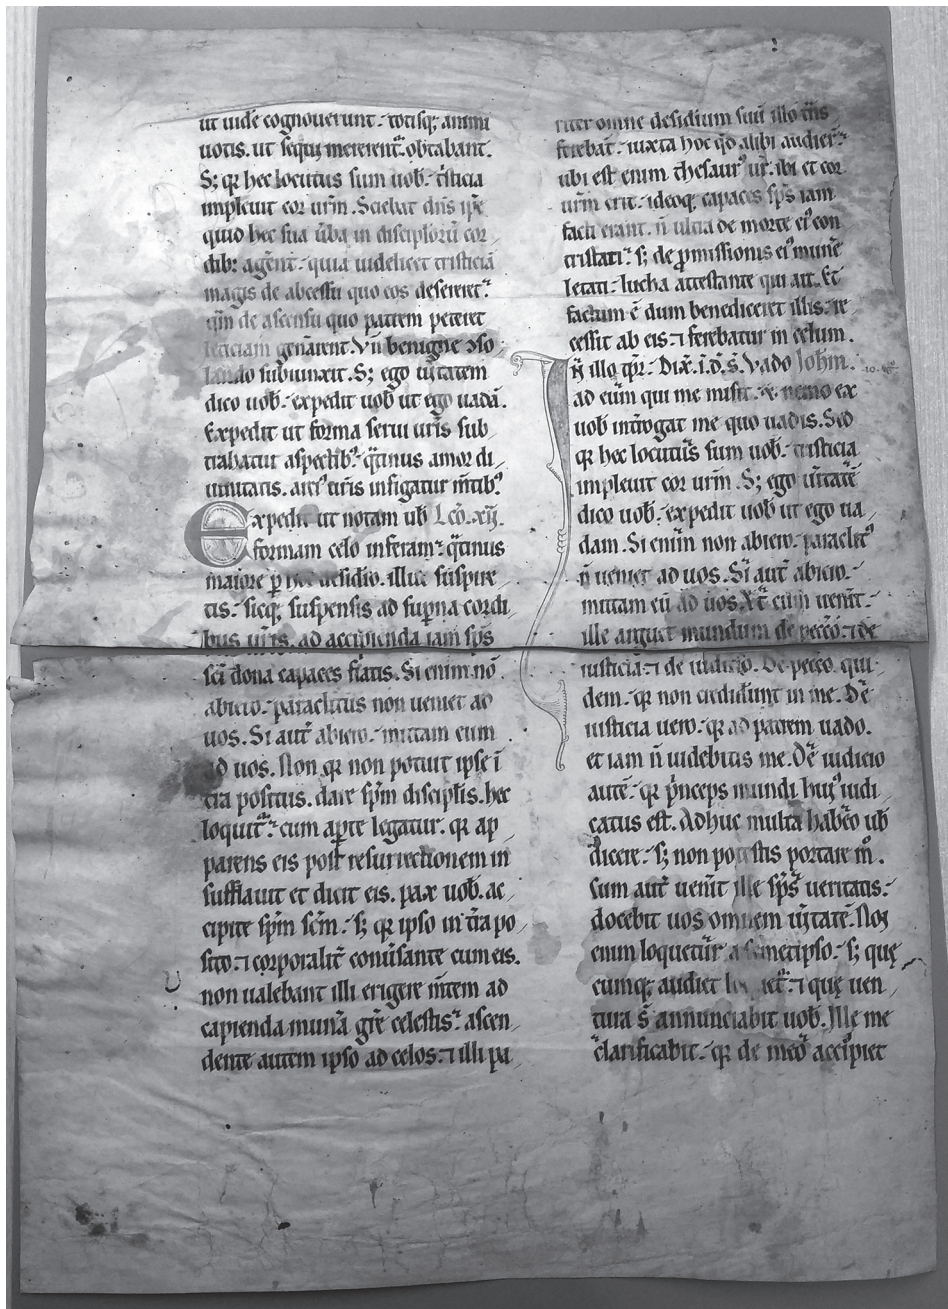 ut uide cognouerunt. totisq; animi
uotis. ut sequi mererent᷑. obtabant.
S; qꝛ hec locutus sum uob. t̾sticia
impleuit cor ur̄m. Sciebat dn̄s ip̄e
quid hec sua ūba in discipl̓oꝝ cor
dib; agen̄t. quia uidelicet tristicia
magis de abcessu quo eos desereret.
qm̄ de ascensu quo patrem peteret
leticiam gen̄arent. Vn̄ benigne ↄso
lando subiunxit. S; ego uītatem
dico uob. expedit uob ut ego uadā.
Expedit ut forma serui ur̄is sub
trahatur aspectib᷒. q̄tinus amor di
uinitatis. ur̄is infigatur m̄tib᷒.
Expedit ut notam ub̄ Leō. xij.
formam celo inferam. q̄tinus
maiore ꝑ desidio. illuc suspire
tis. sicq; suspensis ad suꝑna cordi
bus ur̄is. ad accipienda iam sp̄s
sc̄i dona capaces fiatis. Si enim nō
abiero. paraclitus non ueniet ad
uos. Si aut̄ abiero. mittam eum
ad uos. Non qꝛ non potuit ipse ī
t̄ra positus. dare sp̄m discipl̓is. hec
loquit᷑. cum aꝑte legatur. qꝛ ap
parens eis post resurrectionem in
sufflauit et dicit eis. pax uob. ac
cipite sp̄m sc̄m. s; qꝛ ipso in t̄ra po
sito. ⁊ corporalit̄ conūsante cum eis.
non ualebant illi erigere m̄tem ad
capienda munā gr̄e celestis. ascen
dente autem ipso ad celos. ⁊ illi pa
riter omne desidium suū illo
ferebat. iuxta hoc qd̄ alibi audier̄.
ubi est enim thesaur᷒ ur̄. ibi et cor
ur̄m erit. ideoq; capaces sp̄s iam
facti erant. n̄ ultra de morte ei᷒ con
tristati. s; de ꝓmissionis ei᷒ munē
letati. lucha attestante qui ait. Et
factum ē dum benediceret illis. re
cessit ab eis. ⁊ ferebatur in celum.
In illo tp̄r. Dix̄. i. d̄. s̄. Vado Iohm̄.
ad eum qui me misit. & nemo ex
uob int̄rogat me quo uadis. Sed
qꝛ hec locutus sum uob. tristicia
impleuit cor ur̄m. S; ego uītatē
dico uob. expedit uob ut ego ua
dam. Si enim non abiero. paraclit᷒
n̄ ueniet ad uos. Si aut̄ abiero.
mittam eū ad uos. Et cum uen̄it.
ille arguet mundum de peccō. ⁊ de
iusticia. ⁊ de iudicio. De pecco. qui
dem. qꝛ non crediderunt in me. De
iusticia uero. qꝛ ad patrem uado.
et iam n̄ uidebitis me. De iudicio
autē. qꝛ p̾nceps mundi hui᷒ iudi
catus est. Adhuc multa habeo ub̄
dicere. s; non potestis portare m̊.
Cum aut̄ uen̄it ille sp̄s ueritatis.
docebit uos omnem uītatē. Non
enim loquetur a semetipso. s; quę
cumq; audiet loquet᷑. ⁊ quę uen
tura s̄ annunciabit uob. Ille me
clarificabit. qꝛ de meo accipiet